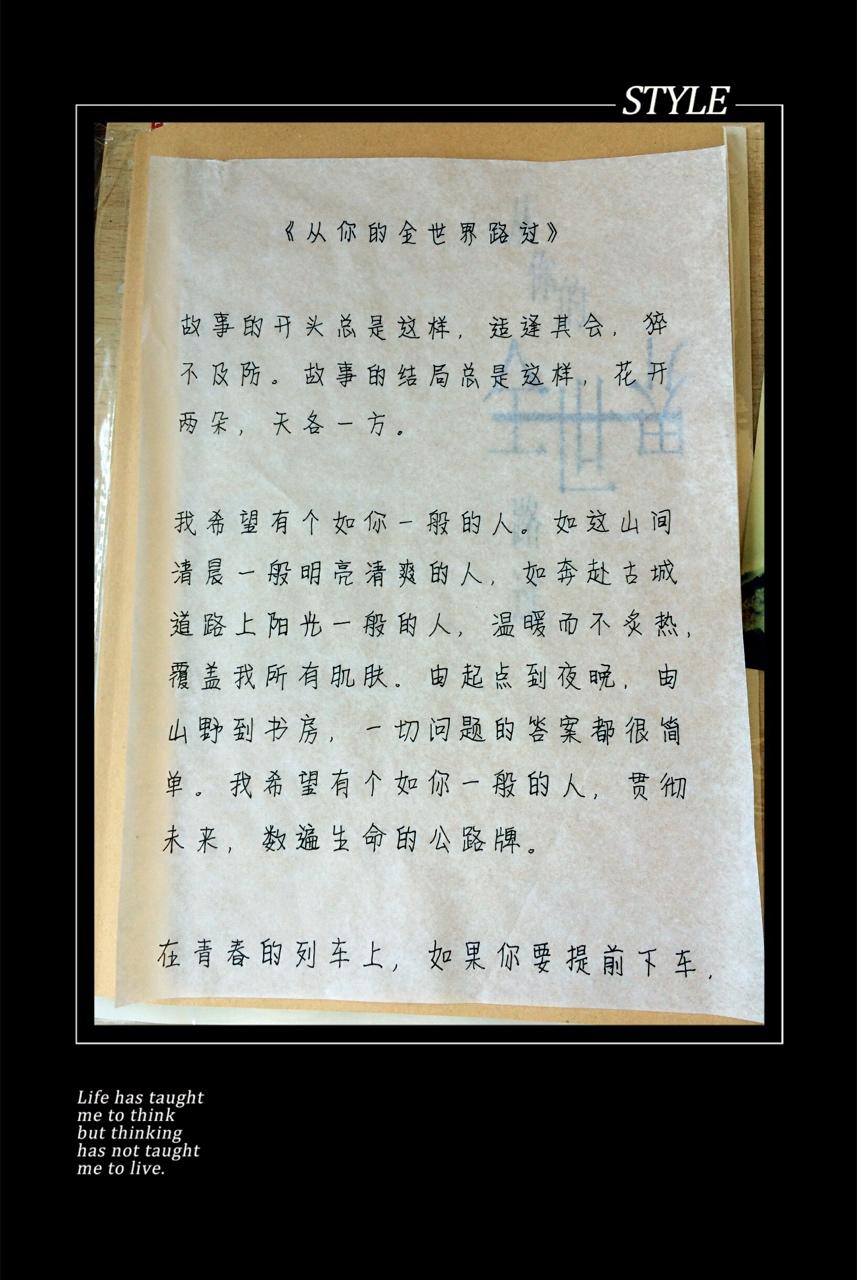 STYLE
《从你的全世界路过》
故事的开头总是这样，适逢其会，猝
不及防。故事的结局总是这样，花开
两朵，天各一方。
我希望有个如你一般的人。如这山间
清晨一般明亮清爽的人，如奔赴古城
道路上阳光一般的人，温暖而不炙热，
覆盖我所有肌肤。由起点到夜晚，由
山野到书房，一切问题的答案都很简
单。我希望有个如你一般的人，贯彻
未来，数遍生命的公路牌。
在青春的列车上，如果你要提前下车，
Life has taught
me to think
but thinking
has not taught
me to live.